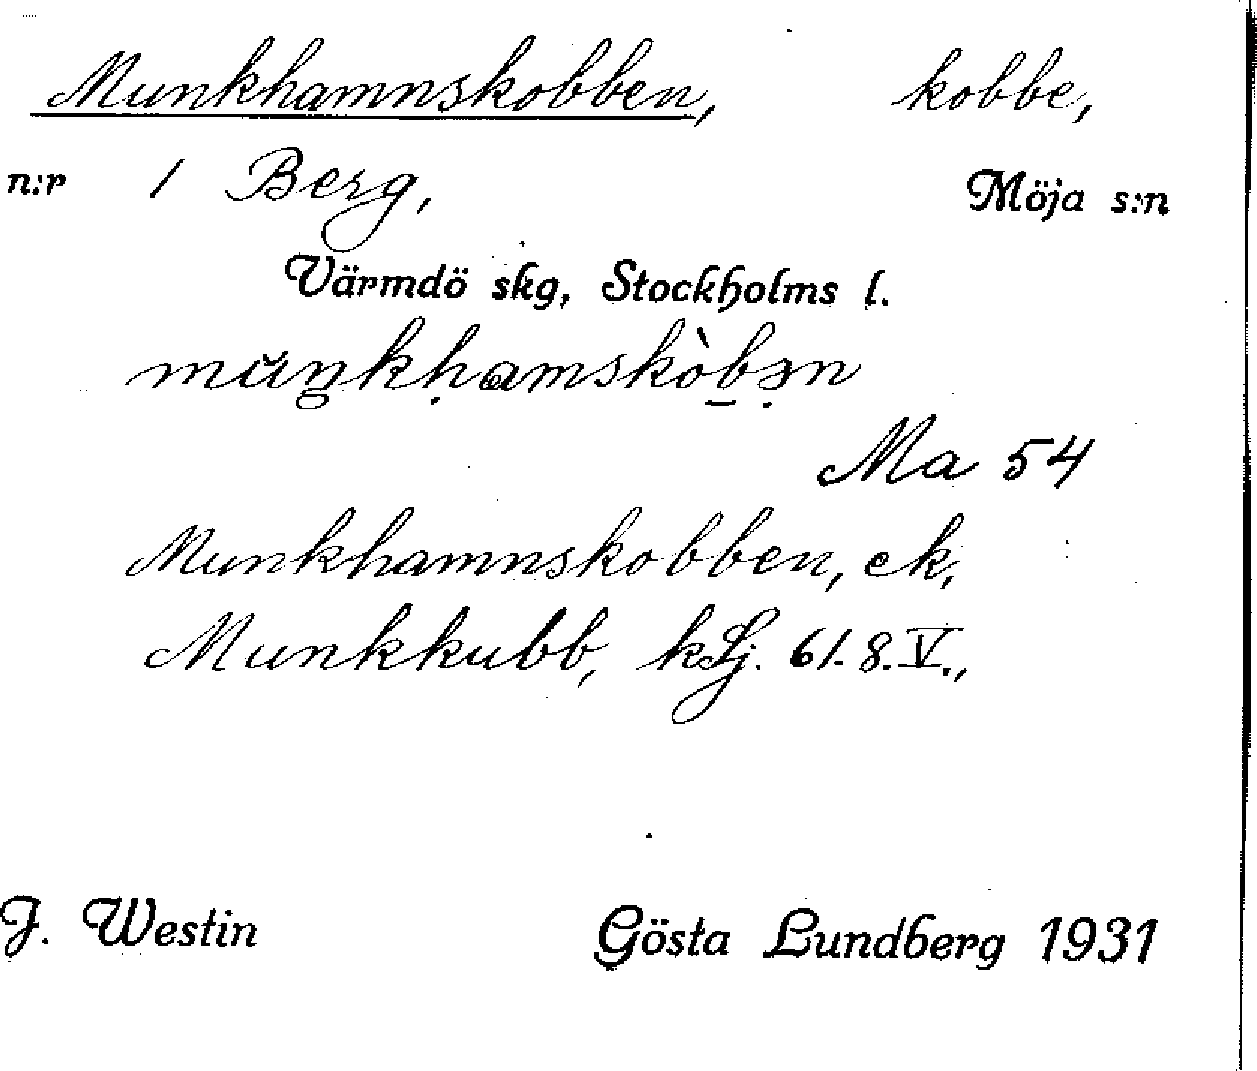 Munkhamnskobben, kobbe,
n:r 1 Berg, Möja s:n
Värmdö skg, Stockholms l.
muŋkḥamskòb̠ə̣n
Ma 54
Munkhamnskobben, ek,
Munkkubb, kSj. 61. 8. V.,
J. Westin Gösta Lundberg 1931